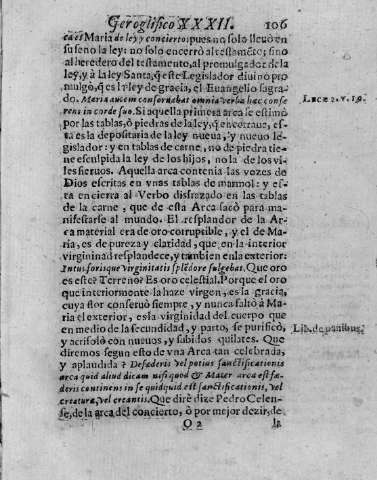 Geroglifico XXXII. 106
ca es Maria de ley y concierto: pues no solo lleuò en
su seno la ley: no solo encerrò al testamẽto; sino
al heredero del testamento, al promulgador de la
ley, y à la ley Santa, q̃ este Legislador diuino pro-
mulgò, q̃ es la ley de gracia, el Euangelio sagra-
do. Maria autem conseruabat omnia verba hæc confe-
rens in corde suo. Si aquella primera arca le estimò
por las tablas, ò piedras de la ley, q̃ encerraua, es-
ta es la depositaria de la ley nueua, y nueuo le-
gislador: y en tablas de carne, no de piedra tie-
ne esculpida la ley de los hijos, no la de los vi-
les sieruos. Aquella arca contenia las vezes de
Dios escritas en vnas tablas de marmol: y es-
ta encierra al Verbo disfrazado en las tablas
de la carne, que de esta Arca sacò para ma-
nifestarse al mundo. El resplandor de la Ar-
ca material era de oro corruptible, y el de Ma-
ria, es de pureza y claridad, que en la interior
virginidad resplandece, y tambien en la exterior:
Intus forisque virginitatis splẽdore fulgebas. Que oro
es este? Terreno? Es oro celestial. Porque el oro
que interiormente la haze virgen, es la gracia,
cuya flor conseruò siempre, y nunca faltò à Ma-
ria el exterior, es la virginidad del cuerpo que
en medio de la fecundidad, y parto, se purificò,
y acrisolò con nueuos, y subidos quilates. Que
diremos segun esto de vna Arca tan celebrada,
y aplaudida? De fœderis vel potius sanctificationis
arca quid aliud dicam nisi quod & Mater arca est fœ-
deris continens in se quidquid est sanctificationis, vel
creaturæ, vel creantis. Que dirè dize Pedro Celen-
se, de la arca del concierto, ò por mejor dezir, de
O 2 la
Lucæ 2. v. 19.
Lib. de panibus.